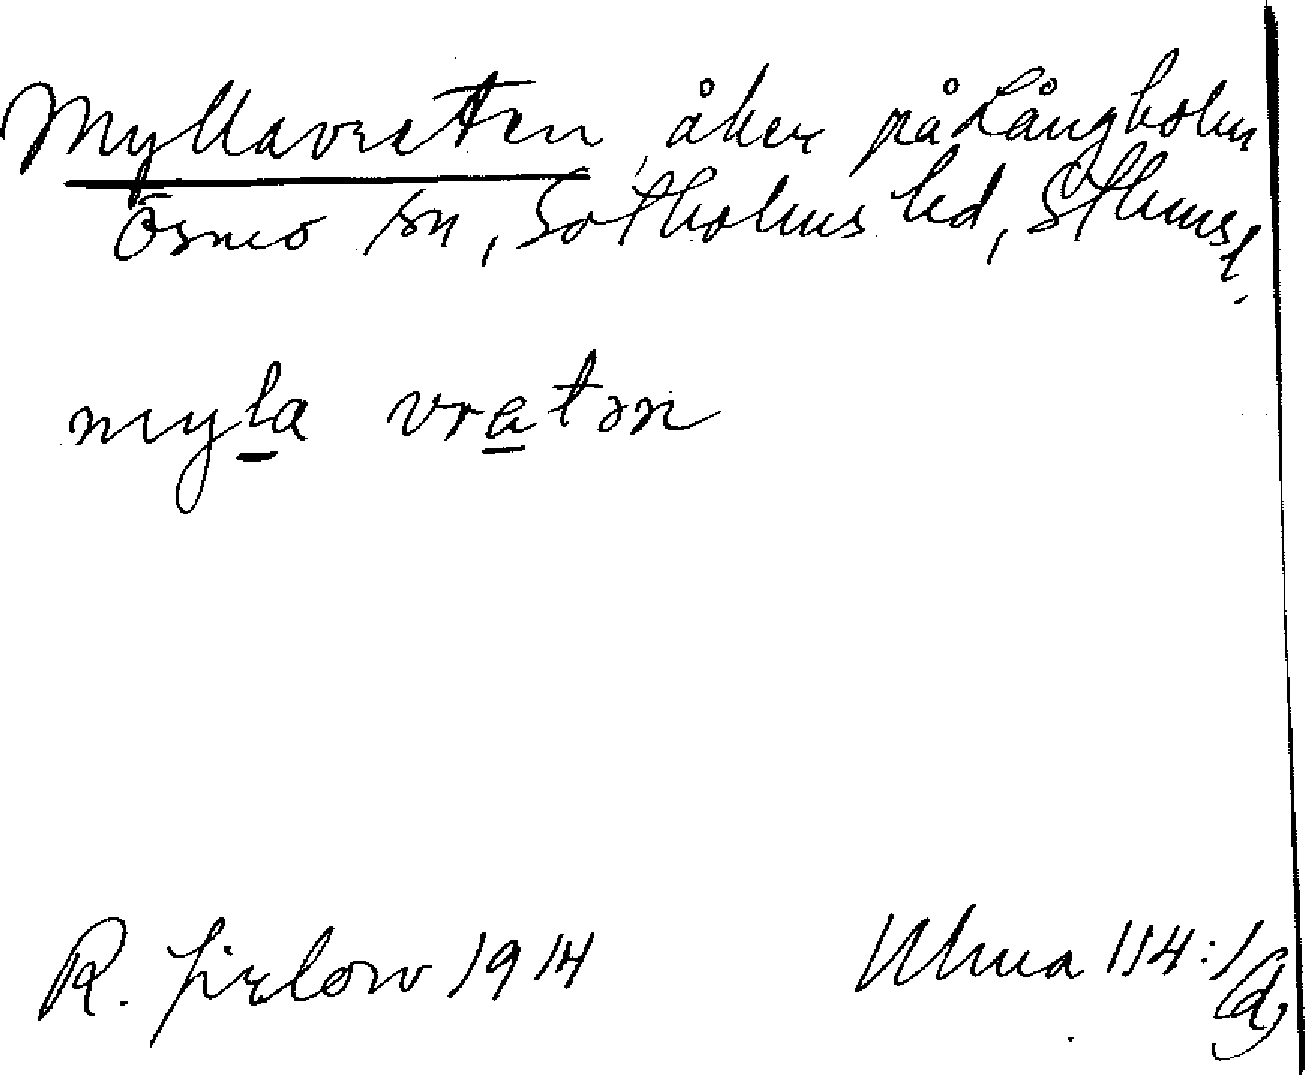 Myllavreten, åker på Långholm
Ösmo sn, Sotholms hd, Sthms l.
myla vratən
R. Jirlow 1914
Ulma 114:1